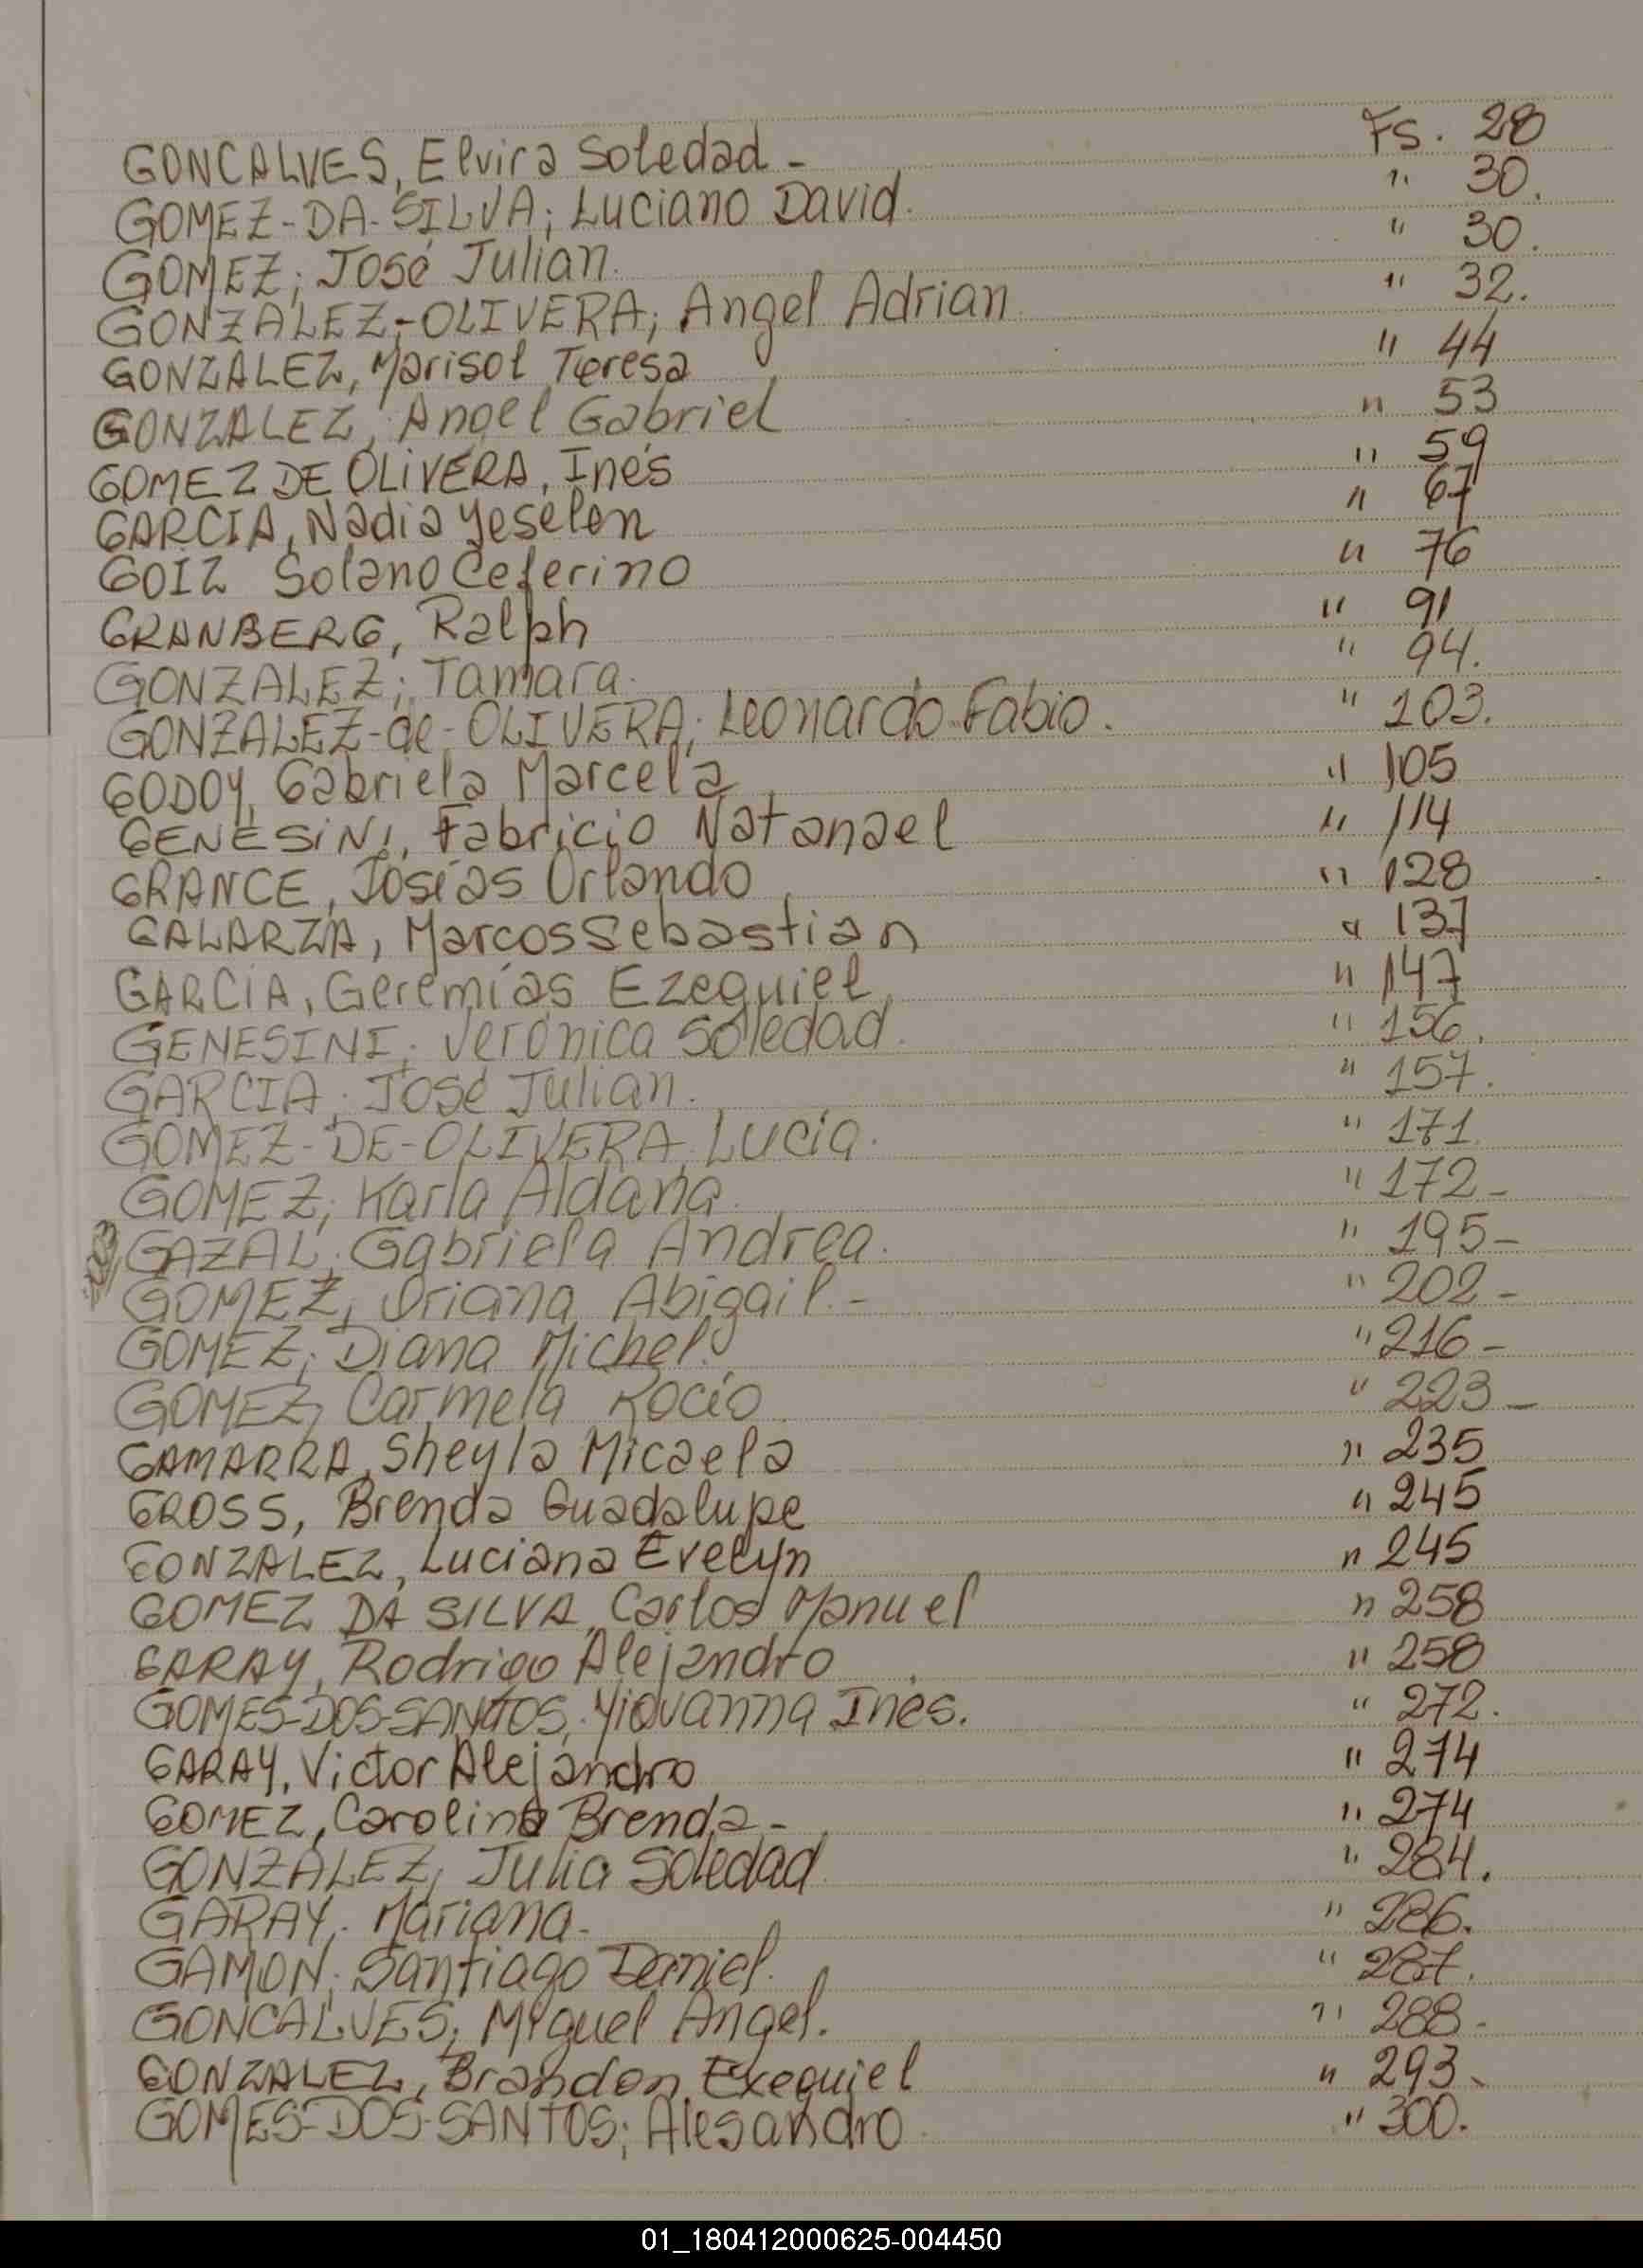 GONCALVES, Elvira Soledad - Fs. 28
GOMEZ-DA-SILVA; Luciano David. " 30.
GOMEZ; José Julian. " 30.
GONZALEZ-OLIVERA; Angel Adrian " 32.
GONZALEZ, Marisol Teresa " 44
GONZALEZ, Angel Gabriel " 53
GOMEZ DE OLIVERA, Inés " 59
GARCIA, Nadia Yeselen " 67
GOIZ Solano Ceferino " 76
GRANBERG, Ralph " 91
GONZALEZ; Tamara. " 94.
GONZALEZ-de-OLIVERA; Leonardo Fabio. " 103.
GODOY, Gabriela Marcela " 105
GENESINI, Fabricio Natanael " 114
GRANCE, Josías Orlando " 128
GALARZA, Marcos Sebastian " 137
GARCIA, Geremías Ezequiel " 147
GENESINI; Verónica Soledad. " 156.
GARCIA; José Julian. " 157.
GOMEZ-DE-OLIVERA; Lucia. " 171.
GOMEZ; Karla Aldana. " 172-
GAZAL; Gabriela Andrea. " 195-
GOMEZ; Oriana Abigail.- " 202-
GOMEZ; Diana Michel. " 216-
GOMEZ, Carmela Rocío. " 223-
GAMARRA, Sheyla Micaela " 235
GROSS, Brenda Guadalupe " 245
GONZALEZ, Luciana Evelyn " 245
GOMEZ DA SILVA, Carlos Manuel " 258
GARAY, Rodrigo Alejandro " 258
GOMES-DOS-SANTOS; Yiovanna Inés. " 272.
GARAY, Victor Alejandro " 274
GOMEZ, Carolina Brenda - " 274
GONZALEZ; Julia Soledad. " 284.
GARAY; Mariana. " 286.
GAMON; Santiago Daniel. " 287.
GONCALVES; Miguel Angel. " 288.
GONZALEZ, Brandon Exequiel " 293.
GOMES-DOS-SANTOS; Alesandro. " 300.
01_180412000625-004450